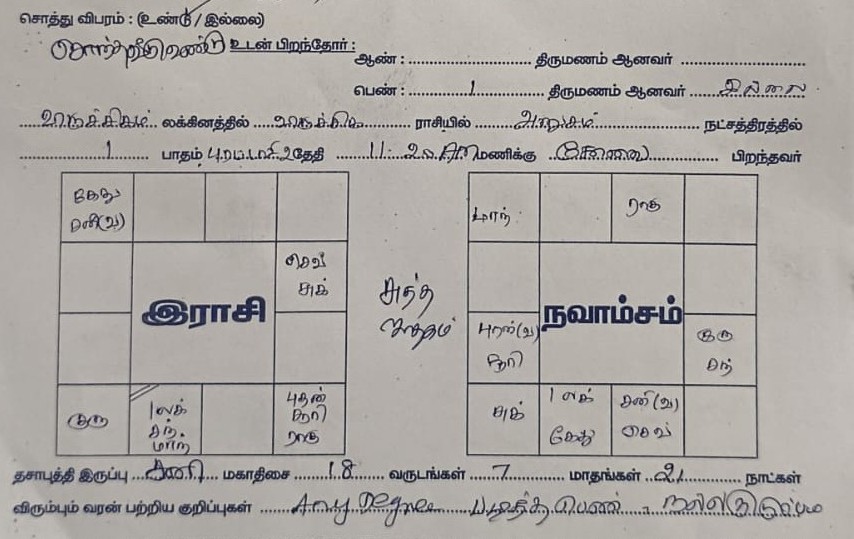 சொத்து விபரம் : (உண்டு / இல்லை)
சொந்தவீடு உண்டு உடன் பிறந்தோர் : ஆண் : திருமணம் ஆனவர்
பெண் : 1 திருமணம் ஆனவர் இல்லை
விருச்சிகம் லக்கினத்தில் விருச்சிக ராசியில் அனுசம் நட்சத்திரத்தில்
1 பாதம் புரட்டாசி 2 தேதி 11. AM மணிக்கு கோவை பிறந்தவர்
கேது
சனி(வ)
செவ்
சுக்
இராசி
குரு
லக்
சந்
மாந்
புதன்
சூரி
ராகு
மாந்
ராகு
நவாம்சம்
புதன்(வ)
சூரி
குரு
சந்
சுக்
லக்
கேது
சனி(வ)
செவ்
தசாபுத்தி இருப்பு சனி மகாதிசை 18 வருடங்கள் 7 மாதங்கள் 21 நாட்கள்
விரும்பும் வரன் பற்றிய குறிப்புகள் Any Degree படித்த பெண், நல்ல குடும்பம்